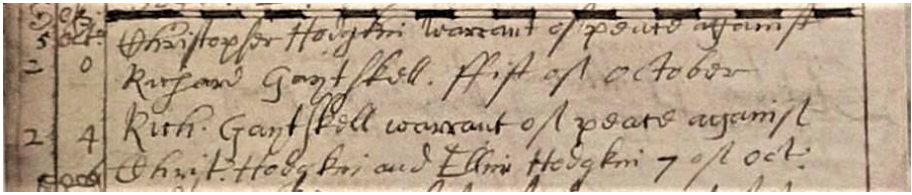 5 oct: Christopher Hodgkin warrant of peace against
2 0 Richard Gaytskell. ffift of October
2 4 Rich. Gaytskell warrant of peace against
Christ: Hodgkin and Ellin Hodgkin 7 of Oct: